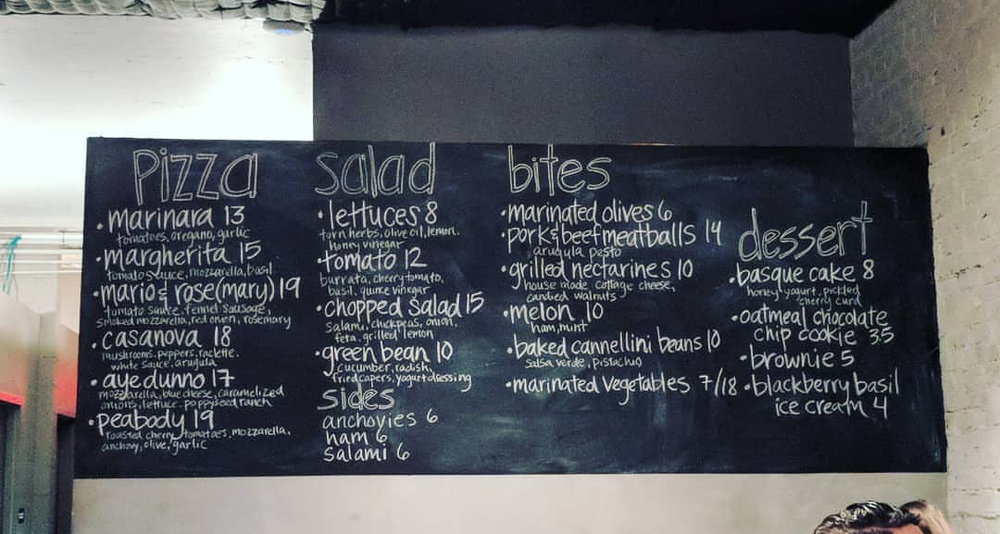 Pizza
• marinara 13
tomatoes, oregano, garlic
• margherita 15
tomato sauce, mozzarella, basil
• mario & rose(mary) 19
tomato sauce, fennel sausage,
smoked mozzarella, red onion, rosemary
• casanova 18
mushrooms, peppers, raclette,
white sauce, arugula
• aye dunno 17
mozzarella, blue cheese, caramelized
onions, lettuce, poppyseed ranch
• peabody 19
roasted cherry tomatoes, mozzarella,
anchovy, olive, garlic
salad
• lettuces 8
torn herbs, olive oil, lemon,
honey vinegar
• tomato 12
burrata, cherry tomato,
basil, quince vinegar
• chopped salad 15
salami, chickpeas, onion,
feta, grilled lemon
• green bean 10
cucumber, radish,
fried capers, yogurt dressing
sides
anchovies 6
ham 6
salami 6
bites
• marinated olives 6
• pork & beef meatballs 14
arugula pesto
• grilled nectarines 10
house made cottage cheese,
candied walnuts
• melon 10
ham, mint
• baked cannellini beans 10
salsa verde, pistachio
• marinated vegetables 7/18
dessert
• basque cake 8
honey yogurt, pickled
cherry curd
• oatmeal chocolate
chip cookie 3.5
• brownie 5
• blackberry basil
ice cream 4